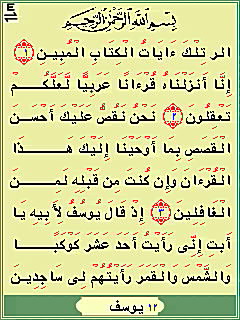 E
بِسْمِ اللَّهِ الرَّحْمَٰنِ الرَّحِيمِ
الر تِلْكَ ءَايَاتُ الْكِتَابِ الْمُبِينِ ١
إِنَّا أَنزَلْنَاهُ قُرْءَانًا عَرَبِيًّا لَّعَلَّكُمْ
تَعْقِلُونَ ٢ نَحْنُ نَقُصُّ عَلَيْكَ أَحْسَنَ
الْقَصَصِ بِمَا أَوْحَيْنَا إِلَيْكَ هَـٰذَا
الْقُرْءَانَ وَإِن كُنتَ مِن قَبْلِهِ لَمِنَ
الْغَافِلِينَ ٣ إِذْ قَالَ يُوسُفُ لِأَبِيهِ يَا
أَبَتِ إِنِّى رَأَيْتُ أَحَدَ عَشَرَ كَوْكَبًا
وَالشَّمْسَ وَالْقَمَرَ رَأَيْتُهُمْ لِى سَاجِدِينَ
١٢ يوسف